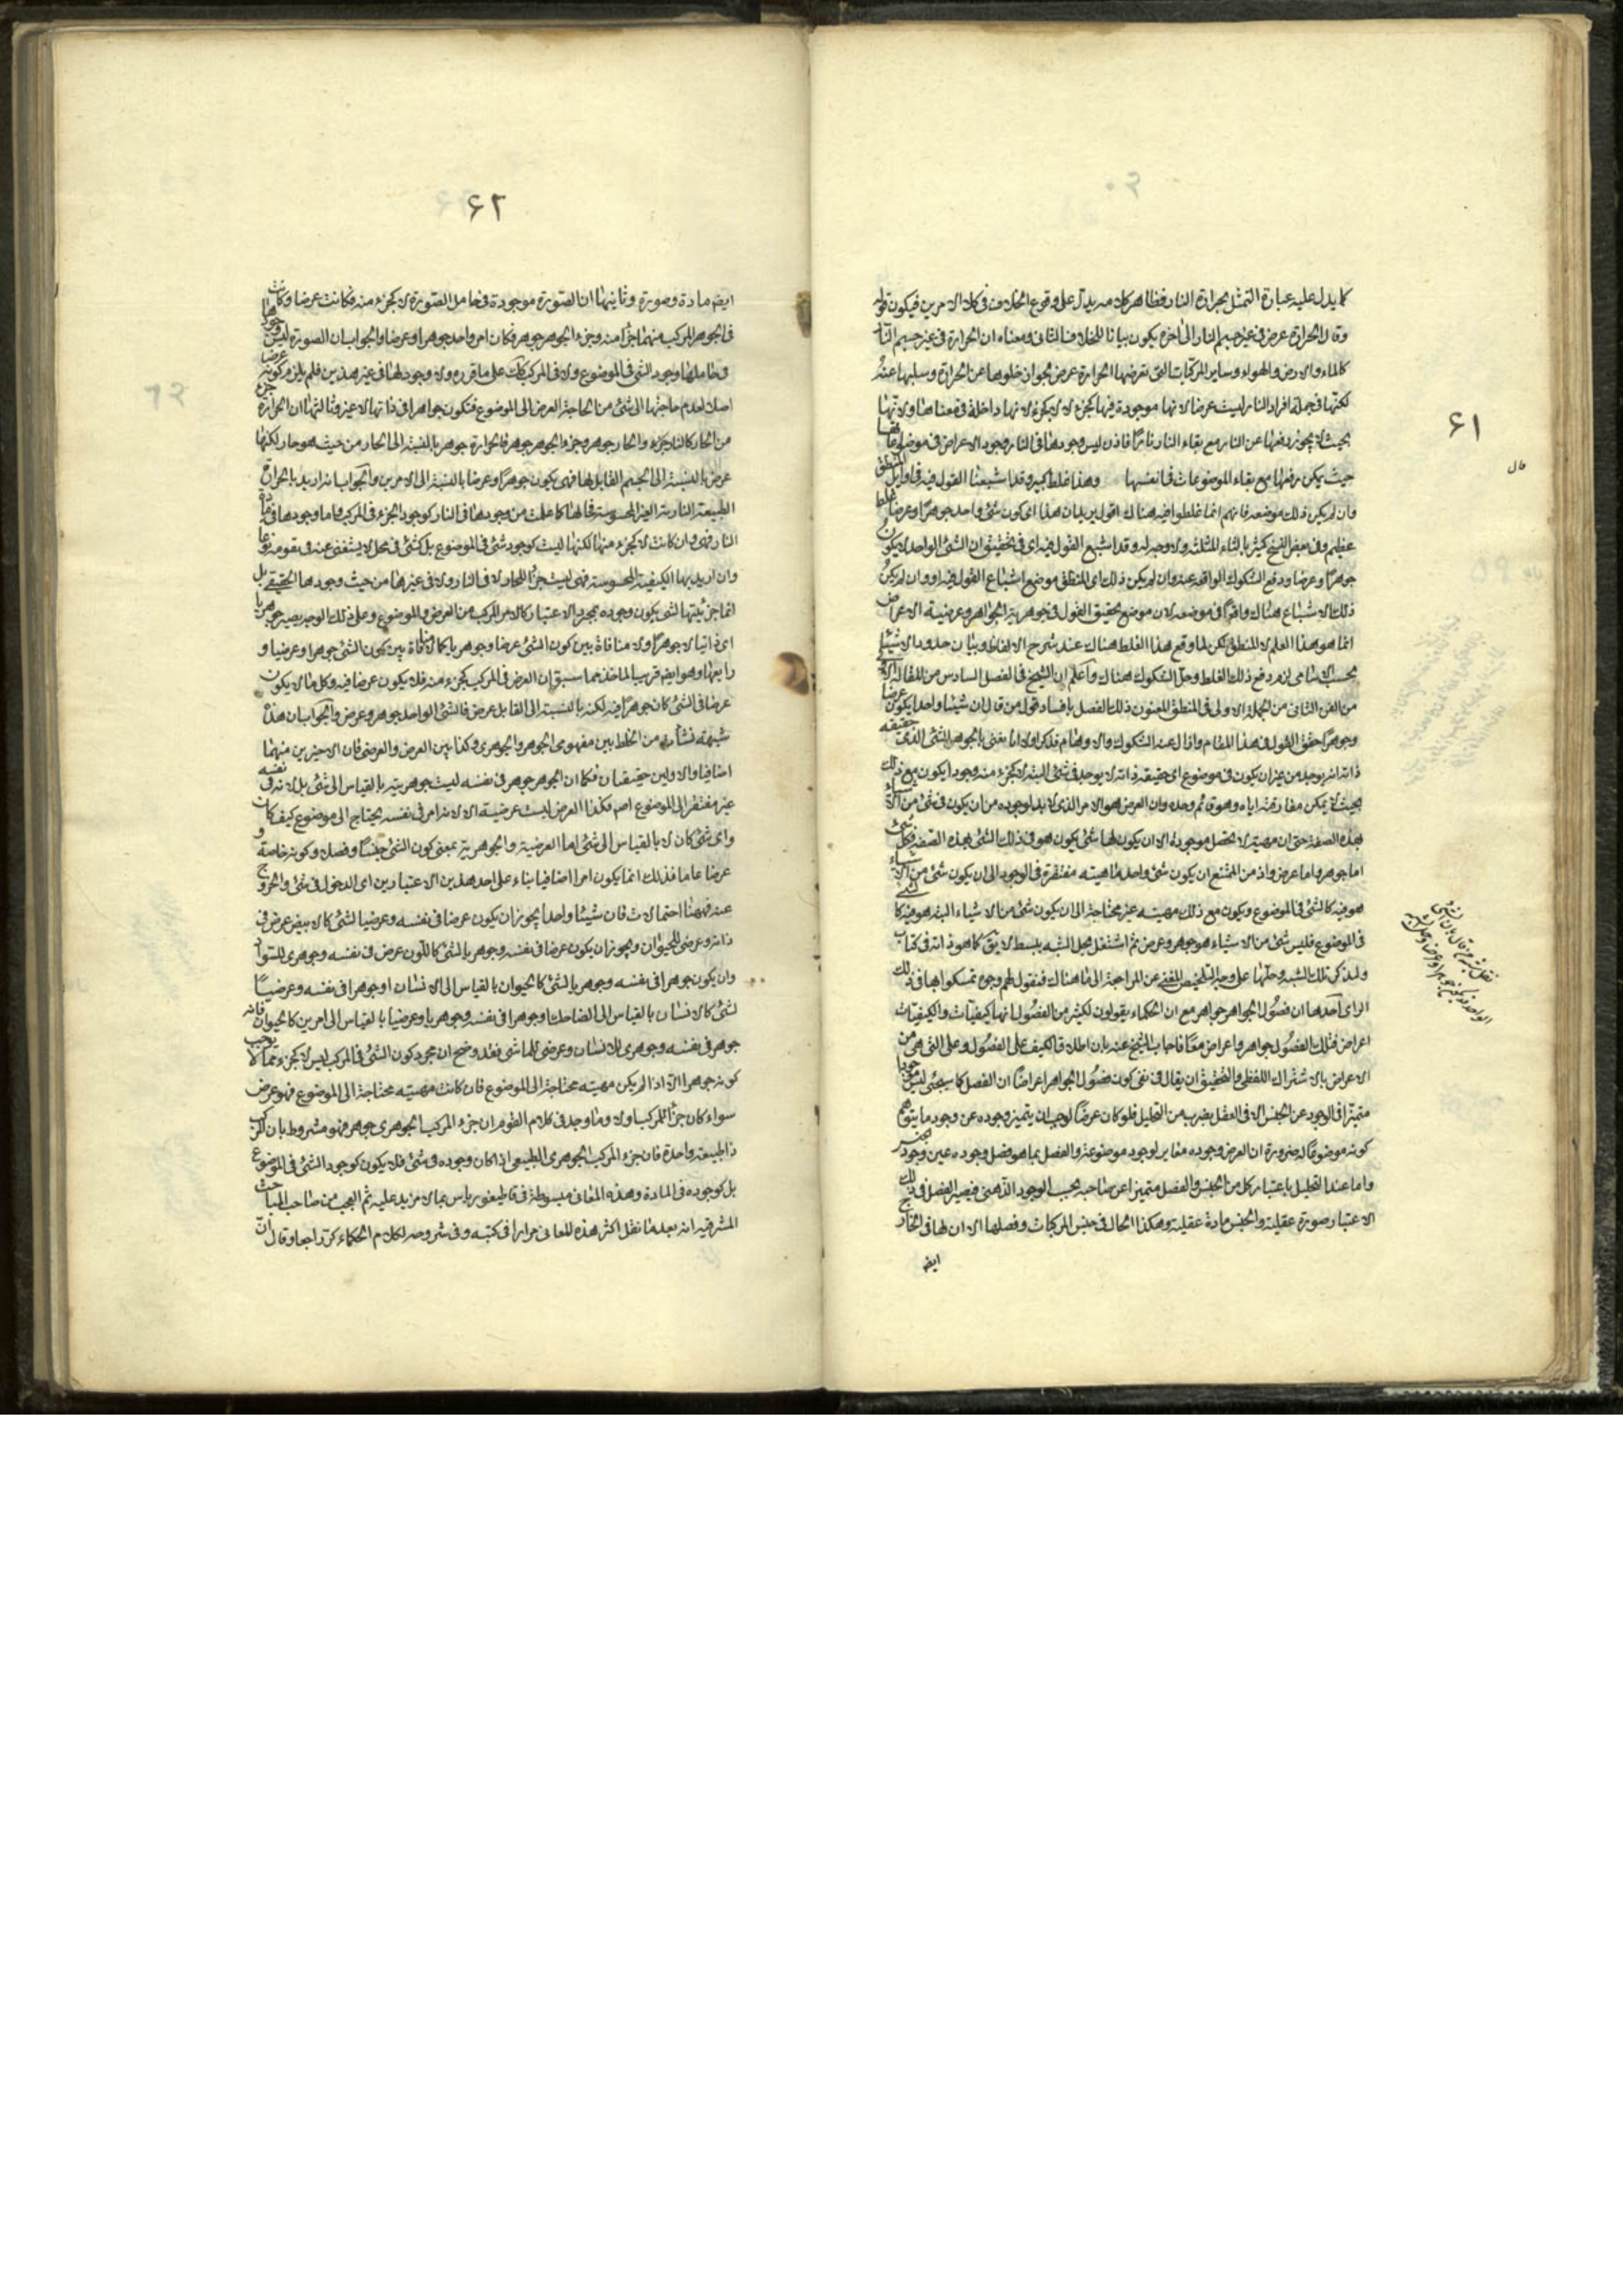 ۶۱
كما يدل عليه عبارة التمثل بحرارة النار فظاهر كلامه يدل على وقوع الخلاف في كلا الامرين فيكون قوله
وقالوا الحرارة عرض في غير جسم النار الى اخره يكون بيانا للخلاف الثانى ومعناه ان الحرارة في غير جسم النار
كالماء والارض والهواء وساير المركبات التى تعرضها الحرارة عرض لجواز خلوها عن الحرارة وسلبها عنه
لكنها في جملة افراد النار ليست عرضا لانها موجودة فيها كجزء لا يكون لانها داخلة في معناها ولانها
بحيث لا يجوز رفعها عن النار مع بقاء النار نارا فاذن ليس وجودها في النار وجود الاعراض في موضوعاتها
حيث يمكن رفعها مع بقاء الموضوعات في انفسها وهذا غلط كبير وقد اشبعنا القول فيه في اوايل المنطق
وان لم يكن ذلك موضعه فانهم انما غلطوا فيه هناك اقول يريد ان هذا اى كون شئ واحد جوهرا وعرضا غلط
عظيم وفى بعض النسخ كثير بالثاء المثلثة ولا وجه له وقد اشبع القول فيه اى في تحقيق ان الشئ الواحد لا يكون
جوهرا وعرضا ودفع الشكوك الواقعة عنه وان لم يكن ذلك اى المنطق موضع اشباع القول فيه او وان لم يكن
ذلك الاشباع هناك واقعا في موضعه لان موضع تحقيق القول في جوهرية الجواهر وعرضية الاعراض
انما هو هذا العلم لا المنطق لكن لما وقع هذا الغلط هناك عند شرح الالفاظ وبيان حدود الاشياء
بحسب الاسامى لزم دفع ذلك الغلط وحل الشكوك هناك واعلم ان الشيخ في الفصل السادس من المقالة الاولى
من الفن الثانى من الجملة الاولى في المنطق المعنون ذلك الفصل بافساد قول من قال ان شيئا واحدا يكون عرضا
وجوهرا حقق القول في هذا المقام وازال عنه الشكوك والاوهام فذكر اولا انا نعنى بالجوهر الشئ الذى حقيقة
ذاته انه يوجد من غير ان يكون في موضوع اى حقيقة ذاته لا يوجد في شئ البتة لا كجزء منه وجودا يكون مع ذلك
بحيث لا يمكن مفارقته اياه وهو قائم وحده وان العرض هو الامر الذى لا بد لوجوده من ان يكون في شئ من الاشياء
بهذه الصفة حتى ان مهيته لا تحصل موجودة الا ان يكون لها شئ يكون هو في ذلك الشئ بهذه الصفة فكل شئ
اما جوهر واما عرض واذ من الممتنع ان يكون شئ واحد ماهيته مفتقرة في الوجود الى ان يكون شئ من الاشياء
هو فيه كالشئ في الموضوع ويكون مع ذلك مهيته غير محتاجة الى ان يكون شئ من الاشياء البتة هو فيه كالشئ
في الموضوع فليس شئ من الاشياء هو جوهر وعرض ثم اشتغل بحل الشبه ببسط لايق كما هو ذاته في كتاب
ولنذكر تلك الشبه وحلها على وجه التلخيص المغنى عن المراجعة الى ما هناك فنقول لهم وجوه تمسكوا بها في ذلك
الراى احدها ان فصول الجواهر جواهر مع ان الحكماء يقولون لكثير من الفصول انها كيفيات والكيفيات
اعراض فتلك الفصول جواهر واعراض معا فاجاب الشيخ عنه بان اطلاق الكيف على الفصول وعلى التى هى من
الاعراض بالاشتراك اللفظى والتحقيق ان يقال في نفى كون فصول الجواهر اعراضا ان الفصل كما سيجئ ليس موجودا
متميزا في الوجود عن الجنس الا في العقل بضرب من التحليل فلو كان عرضا لوجب ان يتميز وجوده عن وجود ما يتوهم
كونه موضوعا له ضرورة ان العرض وجوده مغاير لوجود موضوعه والفصل بما هو فصل وجوده عين وجود الجنس
واما عند التحليل باعتبار كل من الجنس والفصل متميزا عن صاحبه بحسب الوجود الذهنى فيصير الفصل في ذلك
الاعتبار صورة عقلية والجنس مادة عقلية وهكذا الحال في جنس المركبات وفصلها الا ان لها في الخارج
ايض
قال
۶۲
ايض مادة وصورة وثانيها ان الصورة موجودة في حامل الصورة لا كجزء منه فكانت عرضا وكانت
في الجوهر المركب منهما جزأ منه وجزء الجوهر جوهر فكان امر واحد جوهرا وعرضا والجواب ان الصورة ليس وجودها
في حاملها وجود الشئ في الموضوع ولا في المركب كذلك على ما قرره ولا وجود لها في غير هذين فلم يلزم كونه عرضا
اصلا لعدم حاجتها الى شئ من الحاجة العرض الى الموضوع فتكون جواهرا في ذاتها لا غير وثالثها ان الحرارة جزء
من الحار كالنار جزء والحار جوهر وجزء الجوهر جوهر فالحرارة جوهر بالنسبة الى الحار من حيث هو حار لكنها
عرض بالنسبة الى الجسم القابل لها فهى يكون جوهرا وعرضا بالنسبة الى الامرين والجواب انه اريد بالحرارة
الطبيعة النارية الغير المحسوسة فحالها كما علمت من وجودها في النار كوجود الجزء في المركب واما وجودها في مادة
النار فهى وان كانت لا كجزء منها لكنها ليست كوجود شئ في الموضوع بل كشئ في محل لا يستغنى عنه في تقومه نوعا
وان اريد بها الكيفية المحسوسة فهى ليست جزأ للحار لا في النار ولا في غيرها من حيث وجودها الحقيقى بل
انما جزئيتها لشئ يكون وجوده بمجرد الاعتبار كالامر المركب من العرض والموضوع وعلى ذلك الوجه يصير جوهريا
اى ذاتيا لا جوهرا ولا منافاة بين كون الشئ عرضا وجوهريا كما لا منافاة بين كون الشئ جوهرا وعرضيا و
رابعها وهو ايض قريب الماخذ مما سبق ان العرض في المركب كجزء منه فلا يكون عرضا فيه وكل ما لا يكون
عرضا في الشئ كان جوهرا فيه لكنه بالنسبة الى القابل عرض فالشئ الواحد جوهر وعرض والجواب ان هذه
شبهة نشأت من الخلط بين مفهومى الجوهر والجوهرى وكذا بين العرض والعرضى فان الاخيرين منهما
اضافيا والاولين حقيقيان فكما ان الجوهر جوهر في نفسه ليست جوهريته بالقياس الى شئ بل لانه في نفسه
غير مفتقر الى الموضوع اصم فكذا العرض ليست عرضيته الا لانه امر في نفسه يحتاج الى موضوع كيف كان
واى شئ كان لا بالقياس الى شئ اما العرضية والجوهرية بمعنى كون الشئ جنسا وفصلا وكونه خاصة و
عرضا عاما فذلك انما يكون امرا اضافيا بناء على احد هذين الاعتبارين اى الدخول في شئ والخروج
عنه فههنا احتمالات فان شيئا واحدا يجوز ان يكون عرضا في نفسه وعرضيا لشئ كالابيض عرض في
ذاته وعرضى للحيوان ويجوز ان يكون عرضا في نفسه وجوهريا لشئ كاللون عرض في نفسه وجوهرى للسواد
وان يكون جوهرا في نفسه وجوهريا لشئ كالحيوان بالقياس الى الانسان او جوهرا في نفسه وعرضيا
لشئ كالانسان بالقياس الى الضاحك او جوهرا في نفسه وجوهريا وعرضيا بالقياس الى امرين كالحيوان فانه
جوهر في نفسه وجوهرى للانسان وعرضى للماشى فقد وضح ان مجرد كون الشئ في المركب ليس لا كجزء مما لا يوجب
كونه جوهرا الا اذا لم يكن مهيته محتاجة الى الموضوع فان كانت مهيته محتاجة الى الموضوع فهو عرض
سواء كان جزأ لمركب او لا وما وجد في كلام القوم ان جزء المركب الجوهرى جوهر فهو مشروط بان المركب
ذا طبيعة واحدة فان جزء المركب الجوهرى الطبيعى اذا كان وجوده في شئ فلا يكون كوجود الشئ في الموضوع
بل كوجوده في المادة وهذه المعانى مبسوطة في قاطيغورياس بما لا مزيد عليه ثم العجب من صاحب المباحث
المشرقية انه بعد ما نقل اكثر هذه المعانى مرارا في كتبه وفى شروحه لكلام الحكماء كرّ راجعا وقال ان